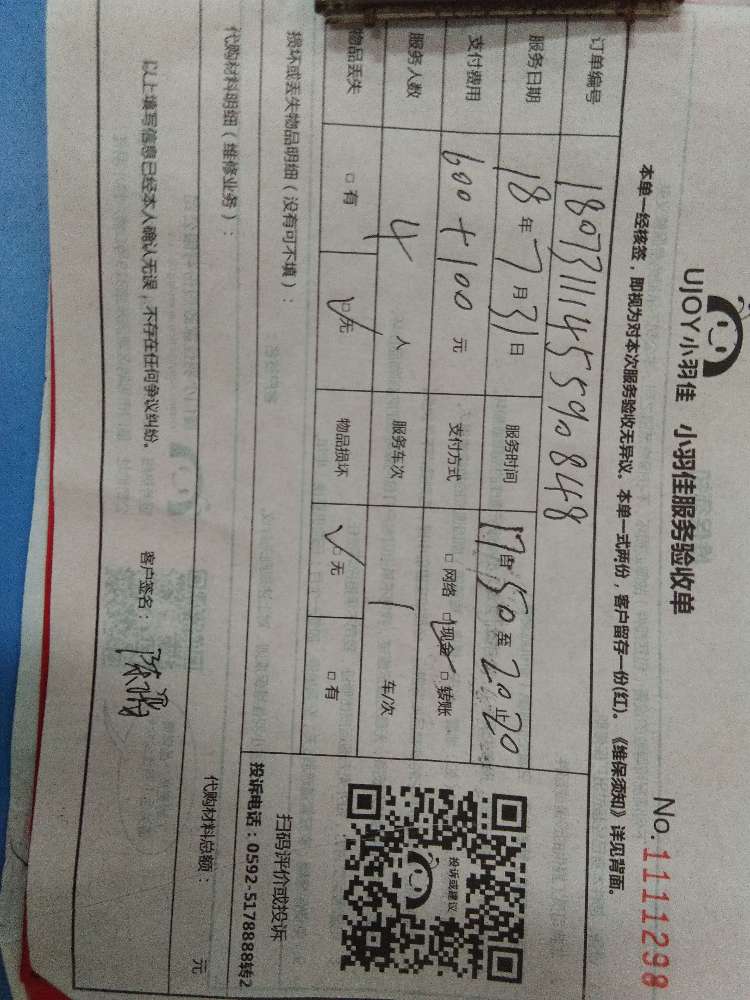 UJOY小羽佳 小羽佳服务验收单 No. 1111298
本单一经核签，即视为对本次服务验收无异议。本单一式两份，客户留存一份(红)。《维保须知》详见背面。
订单编号 180731114559 0848
服务日期 18年7月31日 服务时间 17:50至20:20止
支付费用 600+100元 支付方式 □网络 □现金 □转账
服务人数 4人 服务车次 1车/次
物品丢失 □有 □无 物品损坏 □无 □有
损坏或丢失物品明细（没有可不填）：
投诉或建议
扫码评价或投诉
投诉电话：0592-5178888转2
代购材料明细（维修业务）： 代购材料总额： 元
以上填写信息已经本人确认无误，不存在任何争议纠纷。 客户签名：陈